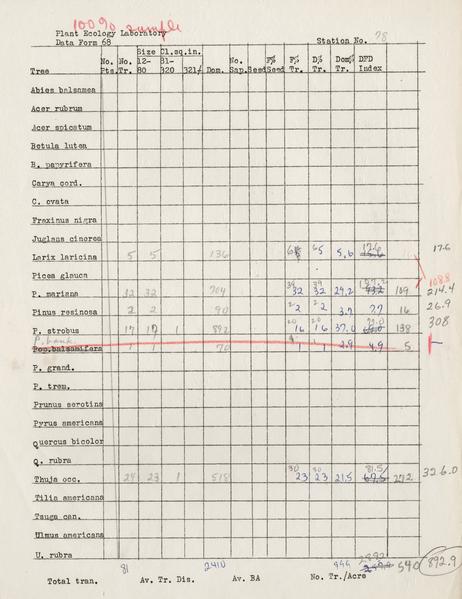 100% sample
Plant Ecology Laboratory
Data Form 68 Station No. 78
Size Cl.sq.in.
No. No. 12- 81- No. F% F% D% Dom% DFD
Tree Pts. Tr. 80 320 321/ Dom. Sap. Seed Seed Tr. Tr. Tr. Index
Abies balsamea
Acer rubrum
Acer spicatum
Betula lutea
B. papyrifera
Carya cord.
C. ovata
Fraxinus nigra
Juglans cinerea
Larix laricina 5 5 136 5.6 17.6 17.6
Picea glauca
108.8
P. mariana 32 704 32 32 29.2 139 214.4
Pinus resinosa 2 2 90 2 2 3.7 7.7 16 26.9
P. strobus 17 17 1 892 16 16 37.0 138 308
P. bank.
Pop. balsamifera 1 70 1 1 2.9 4.9 5
P. grand.
P. trem.
Prunus serotina
Pyrus americana
Quercus bicolor
Q. rubra
Thuja occ. 24 23 1 518 30 30 23 23 21.5 81.5 67.5 242 326.0
Tilia americana
Tsuga can.
Ulmus americana
U. rubra
81 2410 540 892.9
Total tran. Av. Tr. Dis. Av. BA No. Tr./Acre